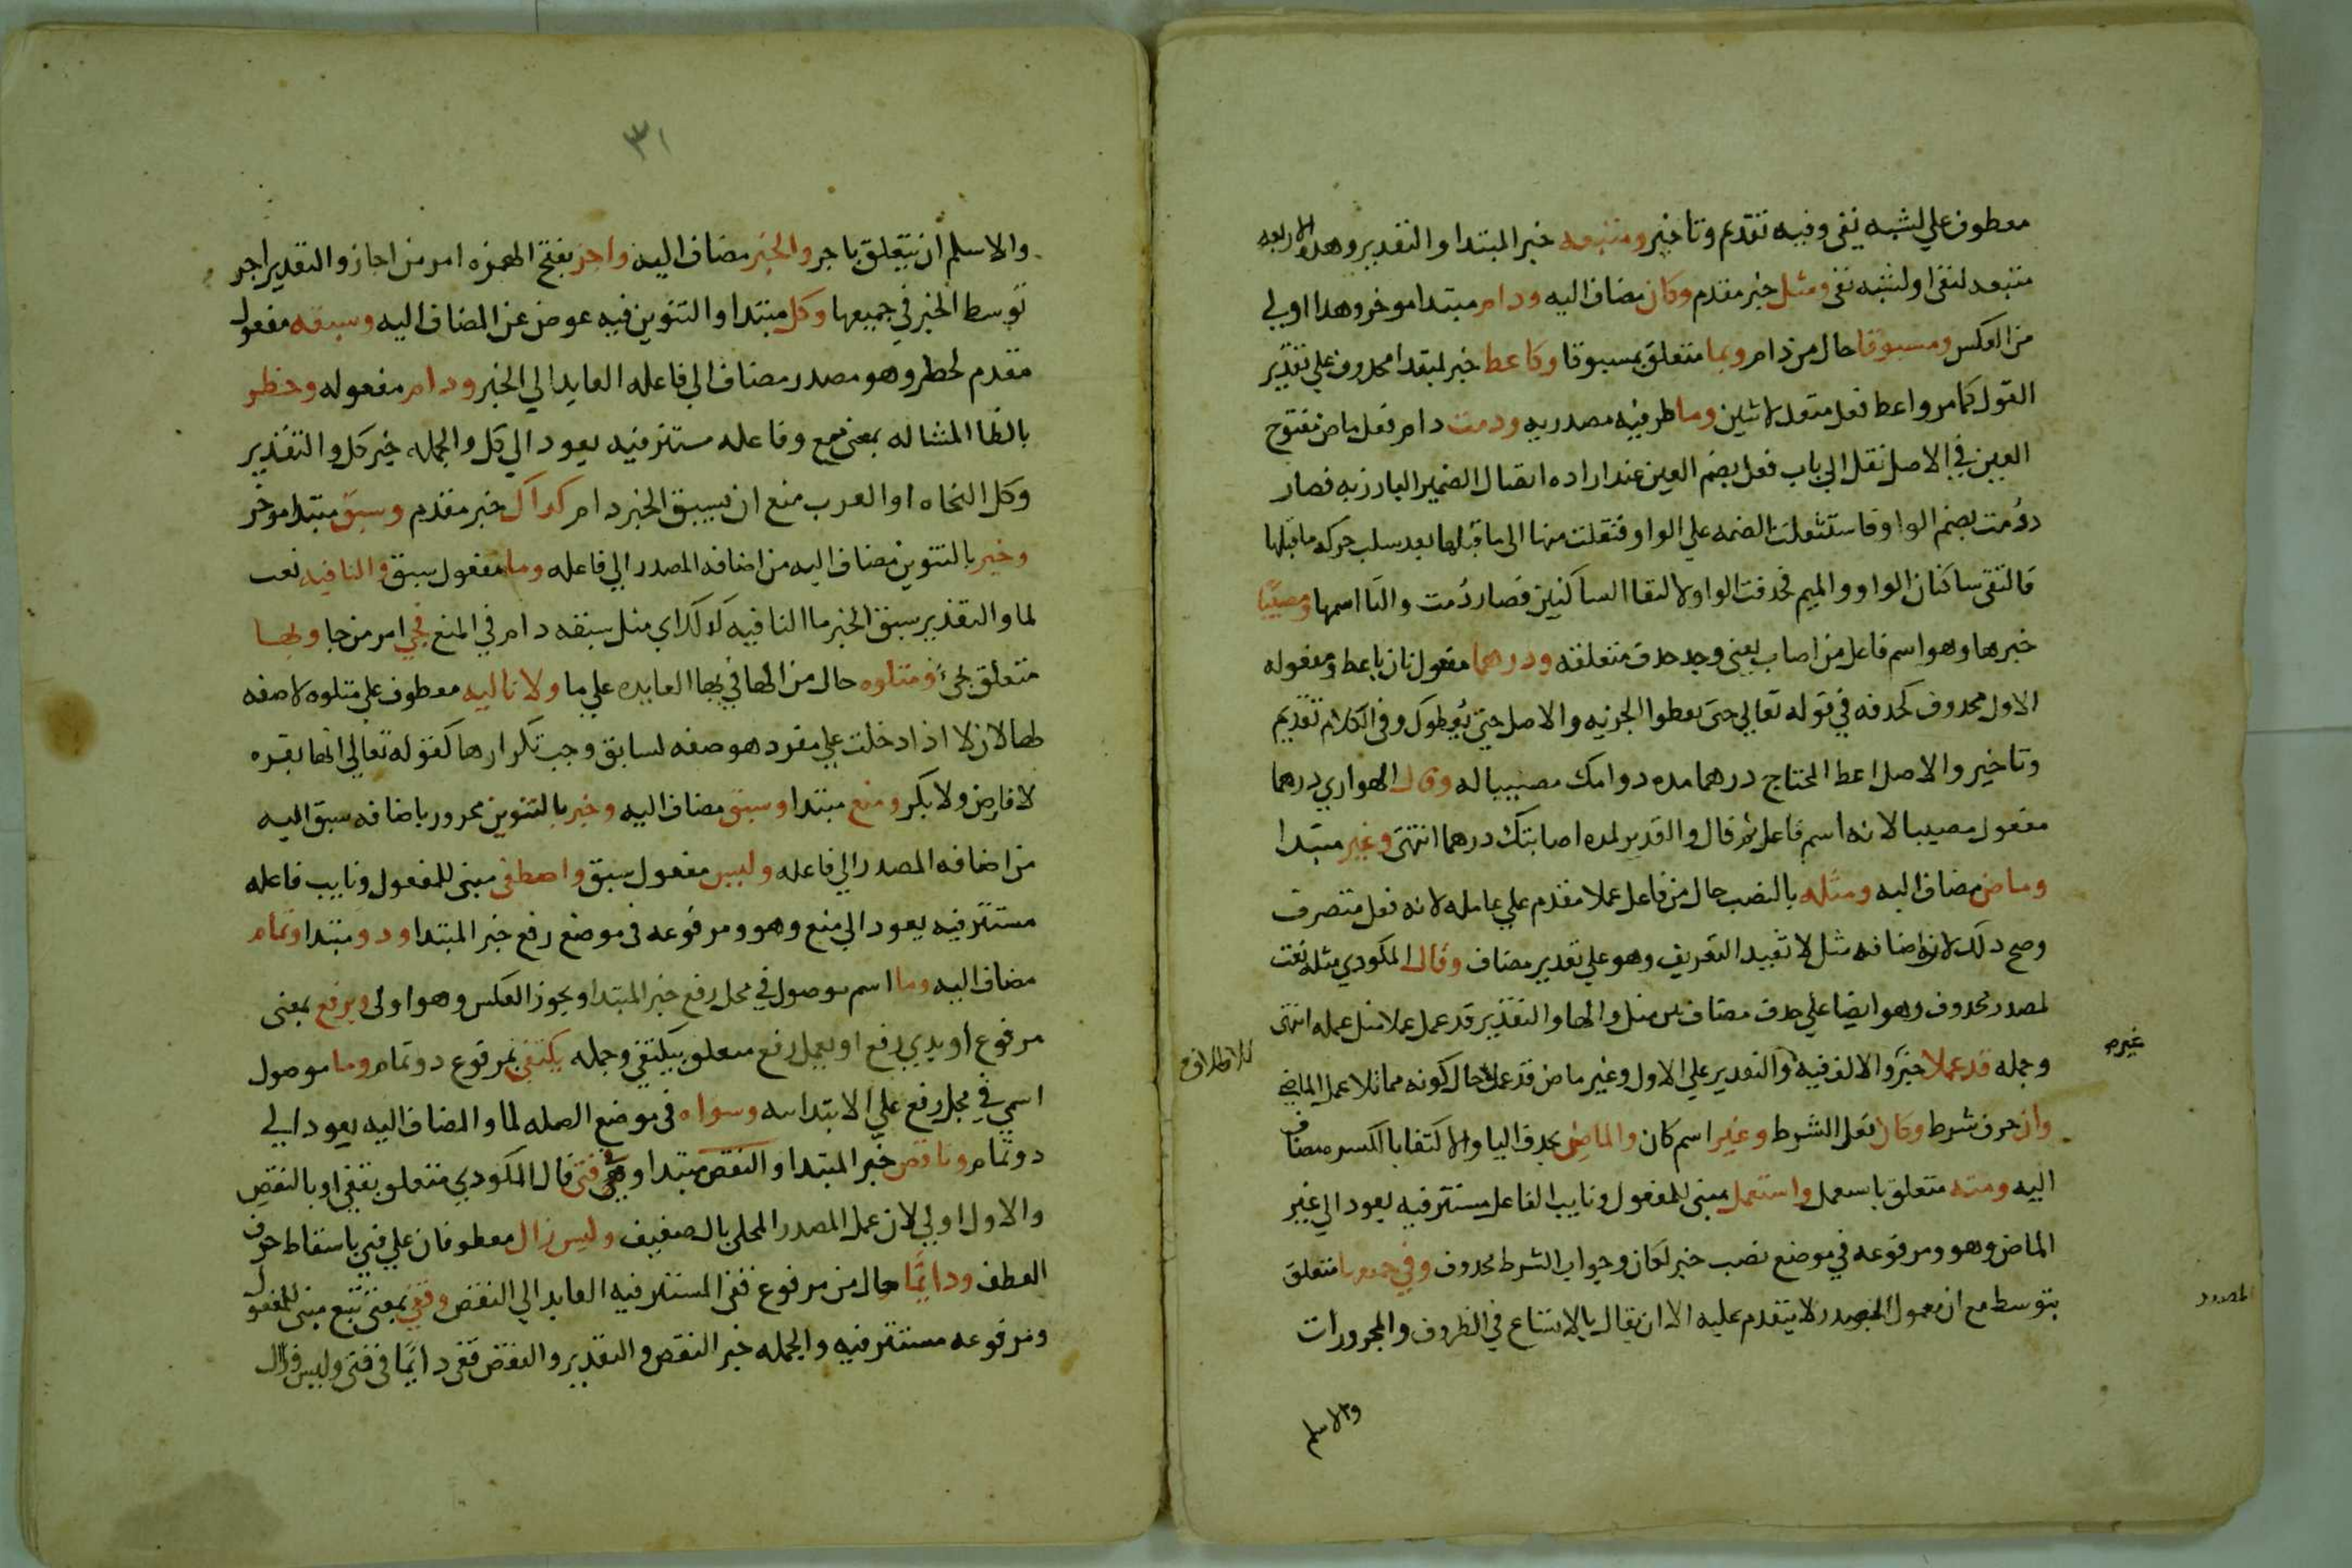 معطوف علي لشبه نفي وفيه تقديم وتاخير ومتبعه خبر المبتدا والتقدير وهذه الاربعه
متبعه لنفي او لشبه نفي ومثل خبر مقدم وكان مضاف اليه ودام مبتدا موخر وهذا اولي
من العكس ومسبوقا حال من دام وبما متعلق بمسبوقا وكاعط خبر لمبتدا محذوف علي تقدير
القول كما مر واعط فعل متعد لاثنين وما ظرفيه مصدريه ودمت دام فعل ماض مفتوح
العين في الاصل نقل الي باب فعل بضم العين عند اراده اتصال الضمير البارز به فصار
دوُمت بضم الواو فاستثقلت الضمه علي الواو فنقلت منها الي ما قبلها بعد سلب حركه ما قبلها
فالتقي ساكنان الواو والميم فحذفت الواو لالتقا الساكنين فصار دُمت والتا اسمها ومصيبًا
خبرها وهو اسم فاعل من اصاب بمعني وجد حذف متعلقه ودرهما مفعول ثان باعط ومفعوله
الاول محذوف كحذفه في قوله تعالي حتي يعطوا الجزيه والاصل حتي يُعطوك وفي الكلام تقديم
وتاخير والاصل اعط المحتاج درهما مده دوامك مصيبا له وقال الهواري درهما
مفعول مصيبا لانه اسم فاعل ثم قال والتقدير لمده اصابتك درهما انتهي وغير مبتدا
وماض مضاف اليه ومثله بالنصب حال من فاعل عملا مقدم علي عامله لانه فعل متصرف
وصح ذلك لان اضافه مثل لا تفيد التعريف وهو علي تقدير مضاف وقال المكودي مثله نعت
لمصدر محذوف وهو ايضا علي حذف مضاف بين مثل والها والتقدير قد عمل عملا مثل عمله انتهي
وجمله قد عملا خبر والالف فيه للاطلاق والتقدير علي الاول وغير ماض قد عمل حال كونه مماثلا عمل الماضي
غيره
وان حرف شرط وكان فعل الشرط وغير اسم كان والماض بحذف اليا والاكتفا بالكسر مضاف
اليه ومنه متعلق باستعمل واستعمل مبني للمفعول ونايب الفاعل مستتر فيه يعود الي غير
الماض وهو ومرفوعه في موضع نصب خبر لكان وجواب الشرط محذوف وفي جميعها متعلق
بتوسط مع ان معمول المصدر لا يتقدم عليه الا ان يقال بالاتساع في الظروف والمجرورات
المصدر
والاسلم
٣١
والاسلم ان يتعلق باجر والخبر مضاف اليه واجز بفتح الهمزه امر من اجاز والتقدير اجز
توسط الخبر في جميعها وكل مبتدا والتنوين فيه عوض عن المضاف اليه وسبقه مفعول
مقدم لحظر وهو مصدر مضاف الي فاعله العايد الي الخبر ودام مفعوله وحظر
بالظا المشاله بمعني منع وفاعله مستتر فيه يعود الي كل والجمله خبر كل والتقدير
وكل النحاه او العرب منع ان يسبق الخبر دام كذاك خبر مقدم وسبق مبتدا موخر
وخبر بالتنوين مضاف اليه من اضافه المصدر الي فاعله وما مفعول سبق والنافيه نعت
لما والتقدير سبق الخبر ما النافيه كذلك اي مثل سبقه دام في المنع فجي امر من جا وبها
متعلق بجئ ومتلوه حال من الها في بها العايده علي ما ولا تاليه معطوف علي متلوه لا صفه
لها لان لا اذا دخلت علي مفرد هو صفه لسابق وجب تكرارها كقوله تعالي انها بقره
لا فارض ولا بكر ومنع مبتدا وسبق مضاف اليه وخبر بالتنوين مجرور باضافه سبق اليه
من اضافه المصدر الي فاعله وليس مفعول سبق واصطفي مبني للمفعول ونايب فاعله
مستتر فيه يعود الي منع وهو ومرفوعه في موضع رفع خبر المبتدا وذو مبتدا وتمام
مضاف اليه وما اسم موصول في محل رفع خبر المبتدا ويجوز العكس وهو اولي وبرفع بمعني
مرفوع او بذي رفع او بعمل رفع متعلق بيكتفي وجمله يكتفي بمرفوع ذو تمام وما موصول
اسمي في محل رفع علي الابتدا وسواه في موضع الصله لما والمضاف اليه يعود الي
ذو تمام وناقص خبر المبتدا والنقص مبتدا وفي فتي قال المكودي متعلق بقفي او بالنقص
والاول اولي لان عمل المصدر المحلي بال ضعيف وليس زال معطوفان علي فتي باسقاط حرف
العطف ودايمًا حال من مرفوع قفي المستتر فيه العايد الي النقص وقفي بمعني تتبع مبني للمفعول
ومرفوعه مستتر فيه والجمله خبر النقص والتقدير والنقص قفي دايمًا في فتي وليس وزال